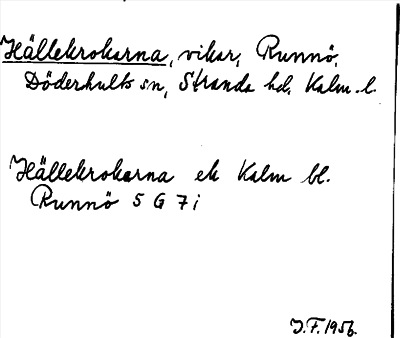 Hällekrokarna, vikar, Runnö,
Döderhults sn, Stranda hd, Kalm. l.
Hällekrokarna ek Kalm bl.
Runnö 5 G 7 i
J.F. 1956.